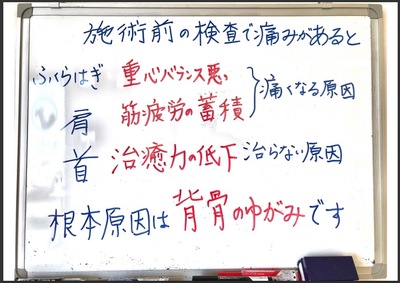 施術前の検査で痛みがあると
ふくらはぎ 重心バランス悪い
肩 筋疲労の蓄積 } 痛くなる原因
首 治癒力の低下 治らない原因
根本原因は背骨のゆがみです